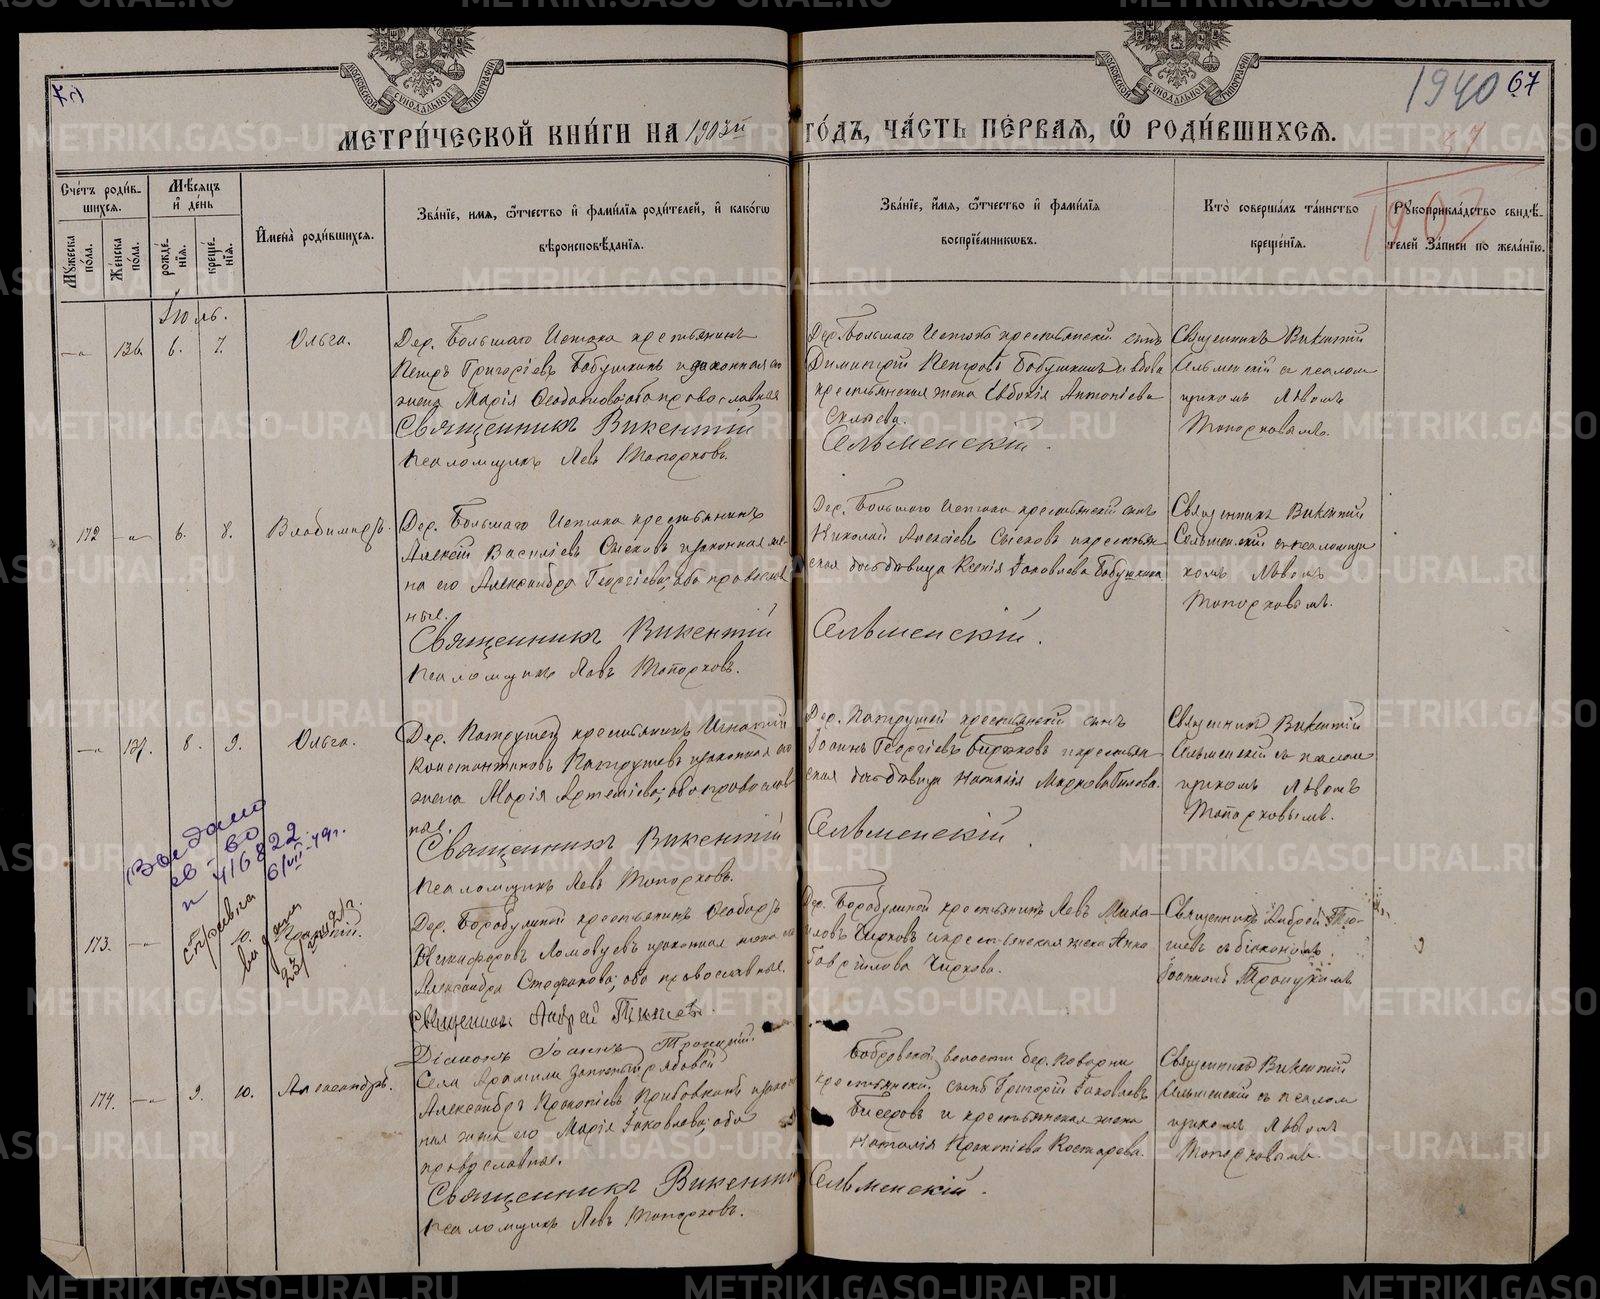 67
1940 67
МОСКОВСКОЙ СѴНОДАЛЬНОЙ ТИПОГРАФИИ
МОСКОВСКОЙ СѴНОДАЛЬНОЙ ТИПОГРАФИИ
МЕТРИ́ЧЕСКОЙ КНИ́ГИ НА 1903й ГО́ДЪ, ЧА́СТЬ ПЕ́РВАЯ, Ѽ РОДИ́ВШИХСЯ.
1903
Сче́тъ роди́в-
шихся.
Му́жеска по́ла.
Же́нска по́ла.
Мѣ́сяцъ
и҆ де́нь
рожде́нїя.
креще́нїя.
И҆мена̀ роди́вшихся.
Зва́нїе, и҆́мя, ѻ҆́тчество и҆ фами́лїя роди́телей, и҆ како́гѡ
вѣроисповѣ́данїя.
Зва́нїе, и҆́мя, ѻ҆́тчество и҆ фами́лїя
воспрїе́мникѡвъ.
Кто̀ соверша́лъ та́инство
креще́нїя.
Рꙋкоприкла́дство свидѣ́-
телей за́писи по жела́нїю.
Іюль.
136. 6. 7. Ольга.
Дер. Большаго Истока крестьянинъ
Петръ Григоріевъ Бабушкинъ и законная его
жена Марія Ѳеодотова; оба православные
Священникъ Викентій
Псаломщикъ Левъ Топорковъ.
Дер. Большаго Истока крестьянскій сынъ
Димитрій Петровъ Бабушкинъ и вдова
крестьянская жена Евдокія Антоніева
Сельменскій.
Священникъ Викентій
Сельменскій съ псалом
щикомъ Львомъ
Топорковымъ.
172 6. 8. Владиміръ.
Дер. Большаго Истока крестьянинъ
Алексій Василіевъ Сысковъ и законная же-
на его Александра Георгіева; оба православ
ные.
Священникъ Викентій
Псаломщикъ Левъ Топорковъ.
Дер. Большаго Истока крестьянскій сынъ
Николай Алексіевъ Сысковъ и крестьян-
ская дочь девица Ксенія Іаковлева Бабушкина
Сельменскій.
Священникъ Викентій
Сельменскій съ псаломщи
комъ Львомъ
Топорковымъ.
137. 8. 9. Ольга.
Дер. Патрушей крестьянинъ Игнатій
Константиновъ Патрушевъ и законная его
жена Марія Артеміева; оба православ
ные.
Священникъ Викентій
Псаломщикъ Левъ Топорковъ.
Дер. Патрушей крестьянскій сынъ
Іоаннъ Георгіевъ Бирюковъ и крестьян-
ская дочь девица Наталія Маркова
Сельменскій.
Священникъ Викентій
Сельменскій съ псалом
щикомъ Львомъ
Топорковымъ.
Выдано
св-во
N 416822
6/VII-49г.
справка
выдана
173.
Дер. Бородулиной крестьянинъ Ѳеодоръ
Никифоровъ Ломовцевъ и законная жена его
Александра Стефанова; оба православные.
Священникъ Андрей
Діаконъ Іоаннъ Троицкій.
Дер. Бородулиной крестьянинъ Левъ Миха-
иловъ Чирковъ и крестьянская жена Анна
Гавріилова Чиркова.
Священникъ Андрей
съ діакономъ
Іоанномъ Троицкимъ
174. 9. 10. Александръ.
Села Арамили запасный рядовой
Александръ Прокопіевъ и закон
ная жена его Марія Іаковлева; оба
православные.
Священникъ Викентій
Псаломщикъ Левъ Топорковъ.
Бобровской волости дер. Поварни
крестьянскій сынъ Григорій Іаковлевъ
Бисеровъ и крестьянская жена
Наталія Прокопіева Костарева.
Сельменскій.
Священникъ Викентій
Сельменскій съ псалом
щикомъ Львомъ
Топорковымъ.
METRIKI.GASO-URAL.RU